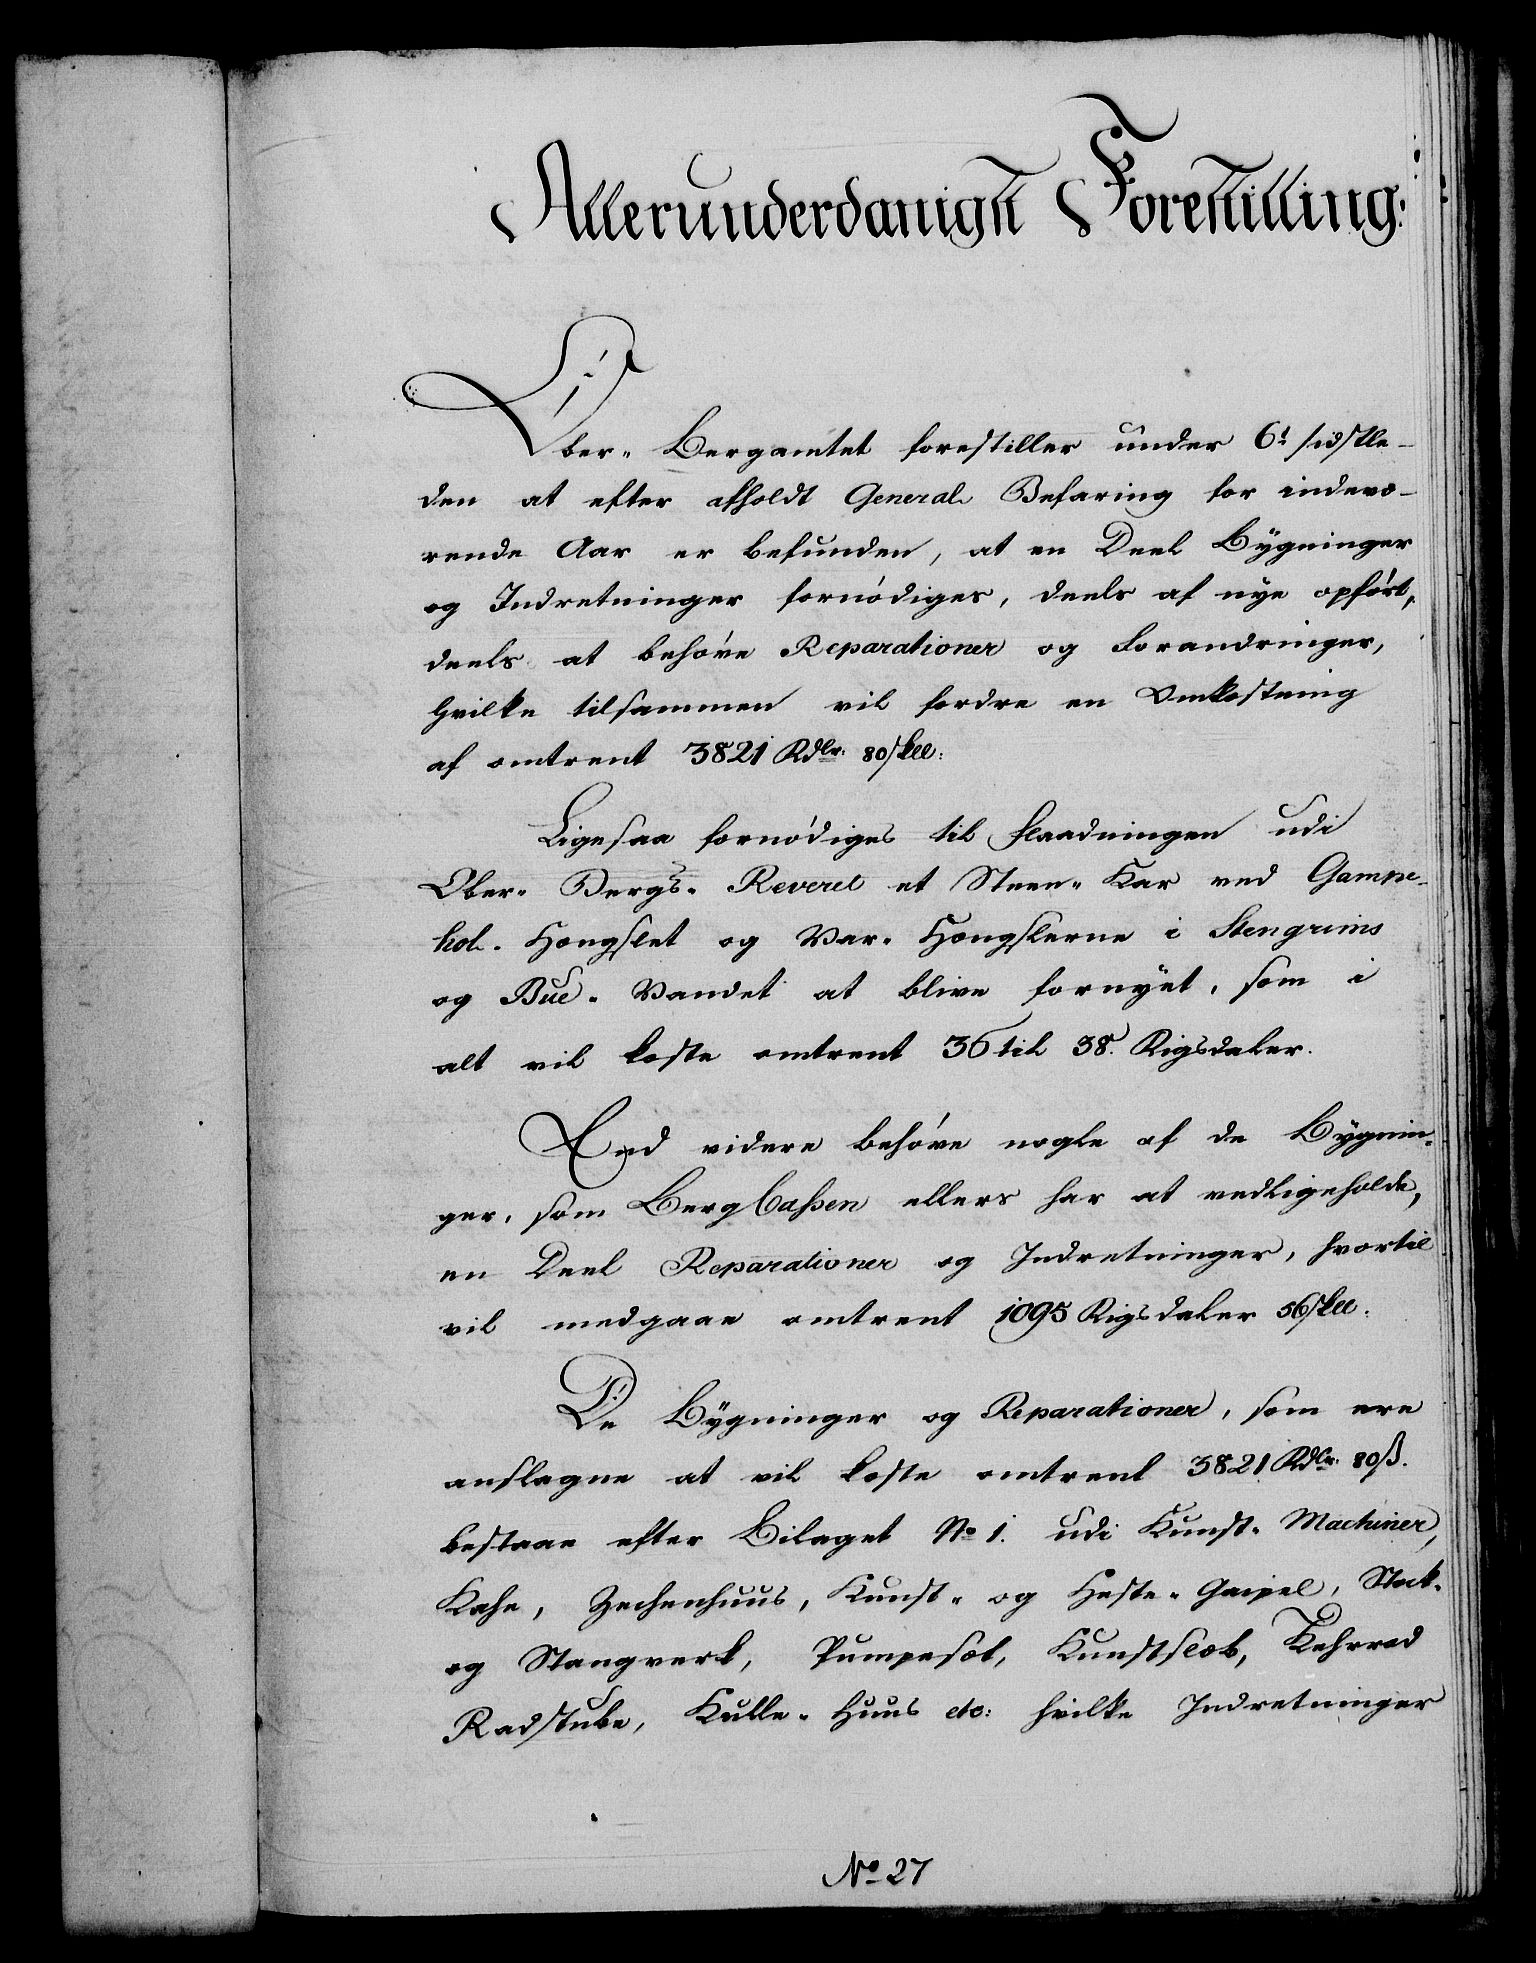 Allerunderdanigst Forestilling:
Ober- Bergamtet forestiller under 6t sidstle-
den at efter afholdt General Befaring for indevæ-
rende Aar er befunden, at en Deel Bÿgninger
og Indretninger fornödiges, deels af nye opfört,
deels at behöve Reparationer og Forandringer,
hvilke tilsammen vil fordre en Omkostning
af omtrent 3821 Rdlr: 80 skll:
Ligesaa fornödiges til Flaadningen udi
Ober- Bergs- Reveret et Steen- Kar ved Gampe-
hol- Hængslet og Var- Hængslerne i Stengrims
og Bue- Vandet at blive fornÿet, som i
alt vil koste omtrent 36 til 38. Rigsdaler.
End videre behöve nogle af de Bÿgnin-
ger, som BergCassen ellers har at vedligeholde,
en Deel Reparationer og Indretninger, hvortil
vil medgaae omtrent 1095 Rigsdaler 56 skll:
De Bÿgninger og Reparationer, som ere
anslagne at vil koste omtrent 3821 Rdlr: 80 ß.
bestaae efter Bilaget No 1. udi Kunst- Machiner,
Kahe, Zechenhuus, Kunst- og Heste- Gaipel, Stock-
og Stangverk, Pumpesæt, Kunstslæb, Kehrrad
Radstube, Kulle- Huus etc: hvilke Indretninger
No 27